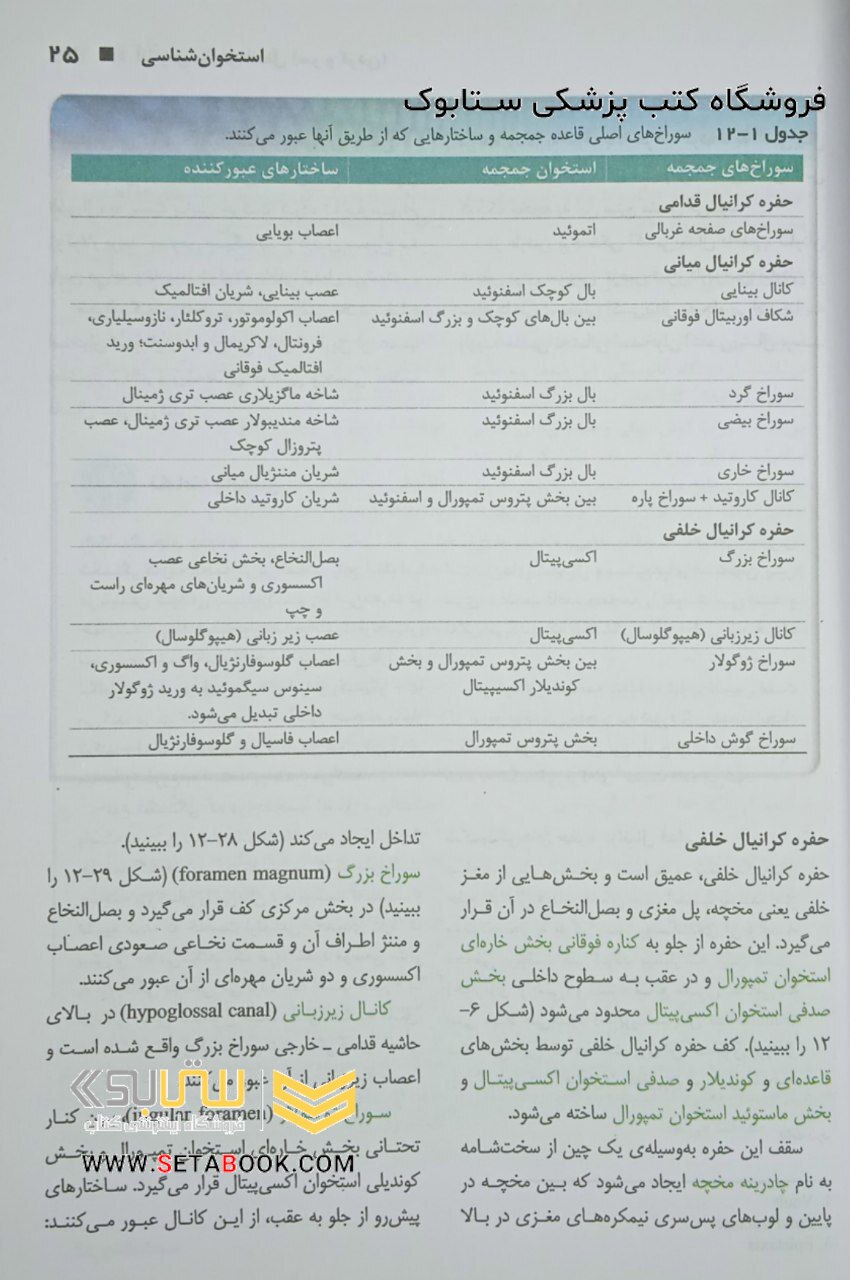 استخوان‌شناسی ■ ۲۵
فروشگاه کتب پزشکی ستابوک
جدول ۱-۱۲ سوراخ‌های اصلی قاعده جمجمه و ساختارهایی که از طریق آنها عبور می‌کنند.
سوراخ‌های جمجمه استخوان جمجمه ساختارهای عبورکننده
حفره کرانیال قدامی
سوراخ‌های صفحه غربالی اتموئید اعصاب بویایی
حفره کرانیال میانی
کانال بینایی بال کوچک اسفنوئید عصب بینایی، شریان افتالمیک
شکاف اوربیتال فوقانی بین بال‌های کوچک و بزرگ اسفنوئید اعصاب اکولوموتور، تروکلئار، نازوسیلیاری،
فرونتال، لاکریمال و ابدوسنت؛ ورید
افتالمیک فوقانی
سوراخ گرد بال بزرگ اسفنوئید شاخه ماگزیلاری عصب تری ژمینال
سوراخ بیضی بال بزرگ اسفنوئید شاخه مندیبولار عصب تری ژمینال، عصب
پتروزال کوچک
سوراخ خاری بال بزرگ اسفنوئید شریان مننژیال میانی
کانال کاروتید + سوراخ پاره بین بخش پتروس تمپورال و اسفنوئید شریان کاروتید داخلی
حفره کرانیال خلفی
سوراخ بزرگ اکسی‌پیتال بصل‌النخاع، بخش نخاعی عصب
اکسسوری و شریان‌های مهره‌ای راست
و چپ
کانال زیرزبانی (هیپوگلوسال) اکسی‌پیتال عصب زیر زبانی (هیپوگلوسال)
سوراخ ژوگولار بین بخش پتروس تمپورال و بخش اعصاب گلوسوفارنژیال، واگ و اکسسوری،
کوندیلار اکسیپیتال سینوس سیگموئید به ورید ژوگولار
داخلی تبدیل می‌شود.
سوراخ گوش داخلی بخش پتروس تمپورال اعصاب فاسیال و گلوسوفارنژیال
حفره کرانیال خلفی
حفره کرانیال خلفی، عمیق است و بخش‌هایی از مغز
خلفی یعنی مخچه، پل مغزی و بصل‌النخاع در آن قرار
می‌گیرد. این حفره از جلو به کناره فوقانی بخش خاره‌ای
استخوان تمپورال و در عقب به سطوح داخلی بخش
صدفی استخوان اکسی‌پیتال محدود می‌شود (شکل ۶-
۱۲ را ببینید). کف حفره کرانیال خلفی توسط بخش‌های
قاعده‌ای و کوندیلار و صدفی استخوان اکسی‌پیتال و
بخش ماستوئید استخوان تمپورال ساخته می‌شود.
سقف این حفره به‌وسیله‌ی یک چین از سخت‌شامه
به نام چادرینه مخچه ایجاد می‌شود که بین مخچه در
پایین و لوب‌های پس‌سری نیمکره‌های مغزی در بالا
تداخل ایجاد می‌کند (شکل ۲۸-۱۲ را ببینید).
سوراخ بزرگ (foramen magnum) (شکل ۲۹-۱۲ را
ببینید) در بخش مرکزی کف قرار می‌گیرد و بصل‌النخاع
و مننژ اطراف آن و قسمت نخاعی صعودی اعصاب
اکسسوری و دو شریان مهره‌ای از آن عبور می‌کنند.
کانال زیرزبانی (hypoglossal canal) در بالای
حاشیه قدامی ـ خارجی سوراخ بزرگ واقع شده است و
اعصاب زیرزبانی از آن عبور می‌کنند.
سوراخ (jugular foramen) بین کنار
تحتانی بخش خاره‌ای استخوان تمپورال و بخش
کوندیلی استخوان اکسی‌پیتال قرار می‌گیرد. ساختارهای
پیش‌رو از جلو به عقب، از این کانال عبور می‌کنند:
ستابوک
فروشگاه اینترنتی کتاب
WWW.SETABOOK.COM